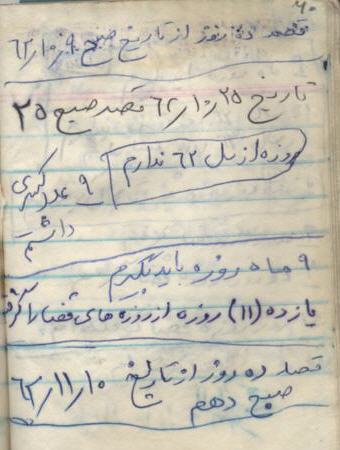 ۶۰
قصد ده روز از تاریخ صبح ۹ر۱۰ر۶۲
تاریخ ۲۵ر۱۰ر۶۲ قصد صبح ۲۵
روزه از سال ۶۲ ندارم
۹ عدد کسری
داشتم
۹ ماه روزه باید بگیرم
یازده (۱۱) روزه از روزه های قضا را گرفتم
قصد ده روز از تاریخ ۱۰ر۱۱ر۶۲
صبح دهم